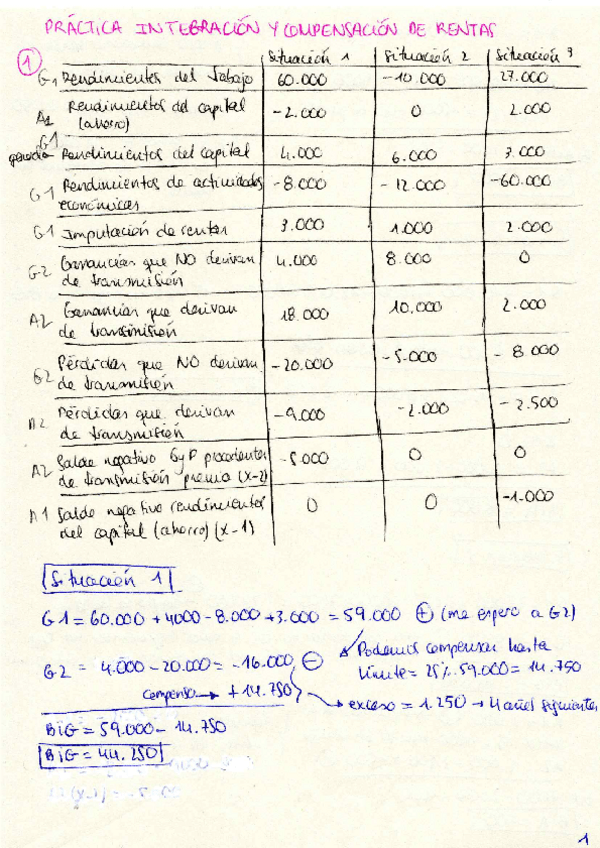 PRÁCTICA INTEGRACIÓN Y COMPENSACIÓN DE RENTAS
1
Situación 1 Situación 2 Situación 3
G1 Rendimientos del trabajo 60.000 -10.000 27.000
A1 Rendimientos del capital (ahorro) -2.000 0 2.000
G1 general Rendimientos del capital 4.000 6.000 3.000
G1 Rendimientos de actividades económicas -8.000 -12.000 -60.000
G1 Imputación de rentas 3.000 1.000 2.000
G2 Ganancias que NO derivan de transmisión 4.000 8.000 0
A2 Ganancias que derivan de transmisión 18.000 10.000 2.000
G2 Pérdidas que NO derivan de transmisión -20.000 -5.000 -8.000
A2 Pérdidas que derivan de transmisión -9.000 -2.000 -2.500
A2 Saldo negativo GyP procedentes de transmisión previa (x-2) -5.000 0 0
A1 Saldo negativo rendimientos del capital (ahorro) (x-1) 0 0 -1.000
Situación 1
G1 = 60.000 + 4000 - 8.000 + 3.000 = 59.000 + (me espero a G2)
Podemos compensar hasta
G2 = 4.000 - 20.000 = -16.000 - límite = 25% 59.000 = 14.750
compenso → + 14.750 → exceso = 1.250 → 4 años siguientes
BIG = 59.000 - 14.750
BIG = 44.250
1